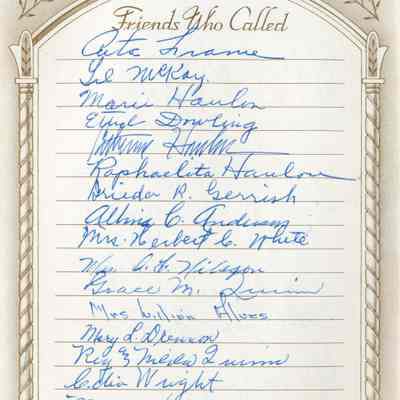 Friends Who Called
Rita Frame
Syl McKay.
Marie Hanlon
Ethyl Dowling
Hanlon
Raphaelita Hanlon
Frieda R. Gerrish
Albina C. Anderson
Mrs. Herbert C. White
Mrs. A. F. Nilsson
Grace M. Quinn
Mrs Lillian Alves
Mary L. Drennan
Ray & Melda Quinn
Wright